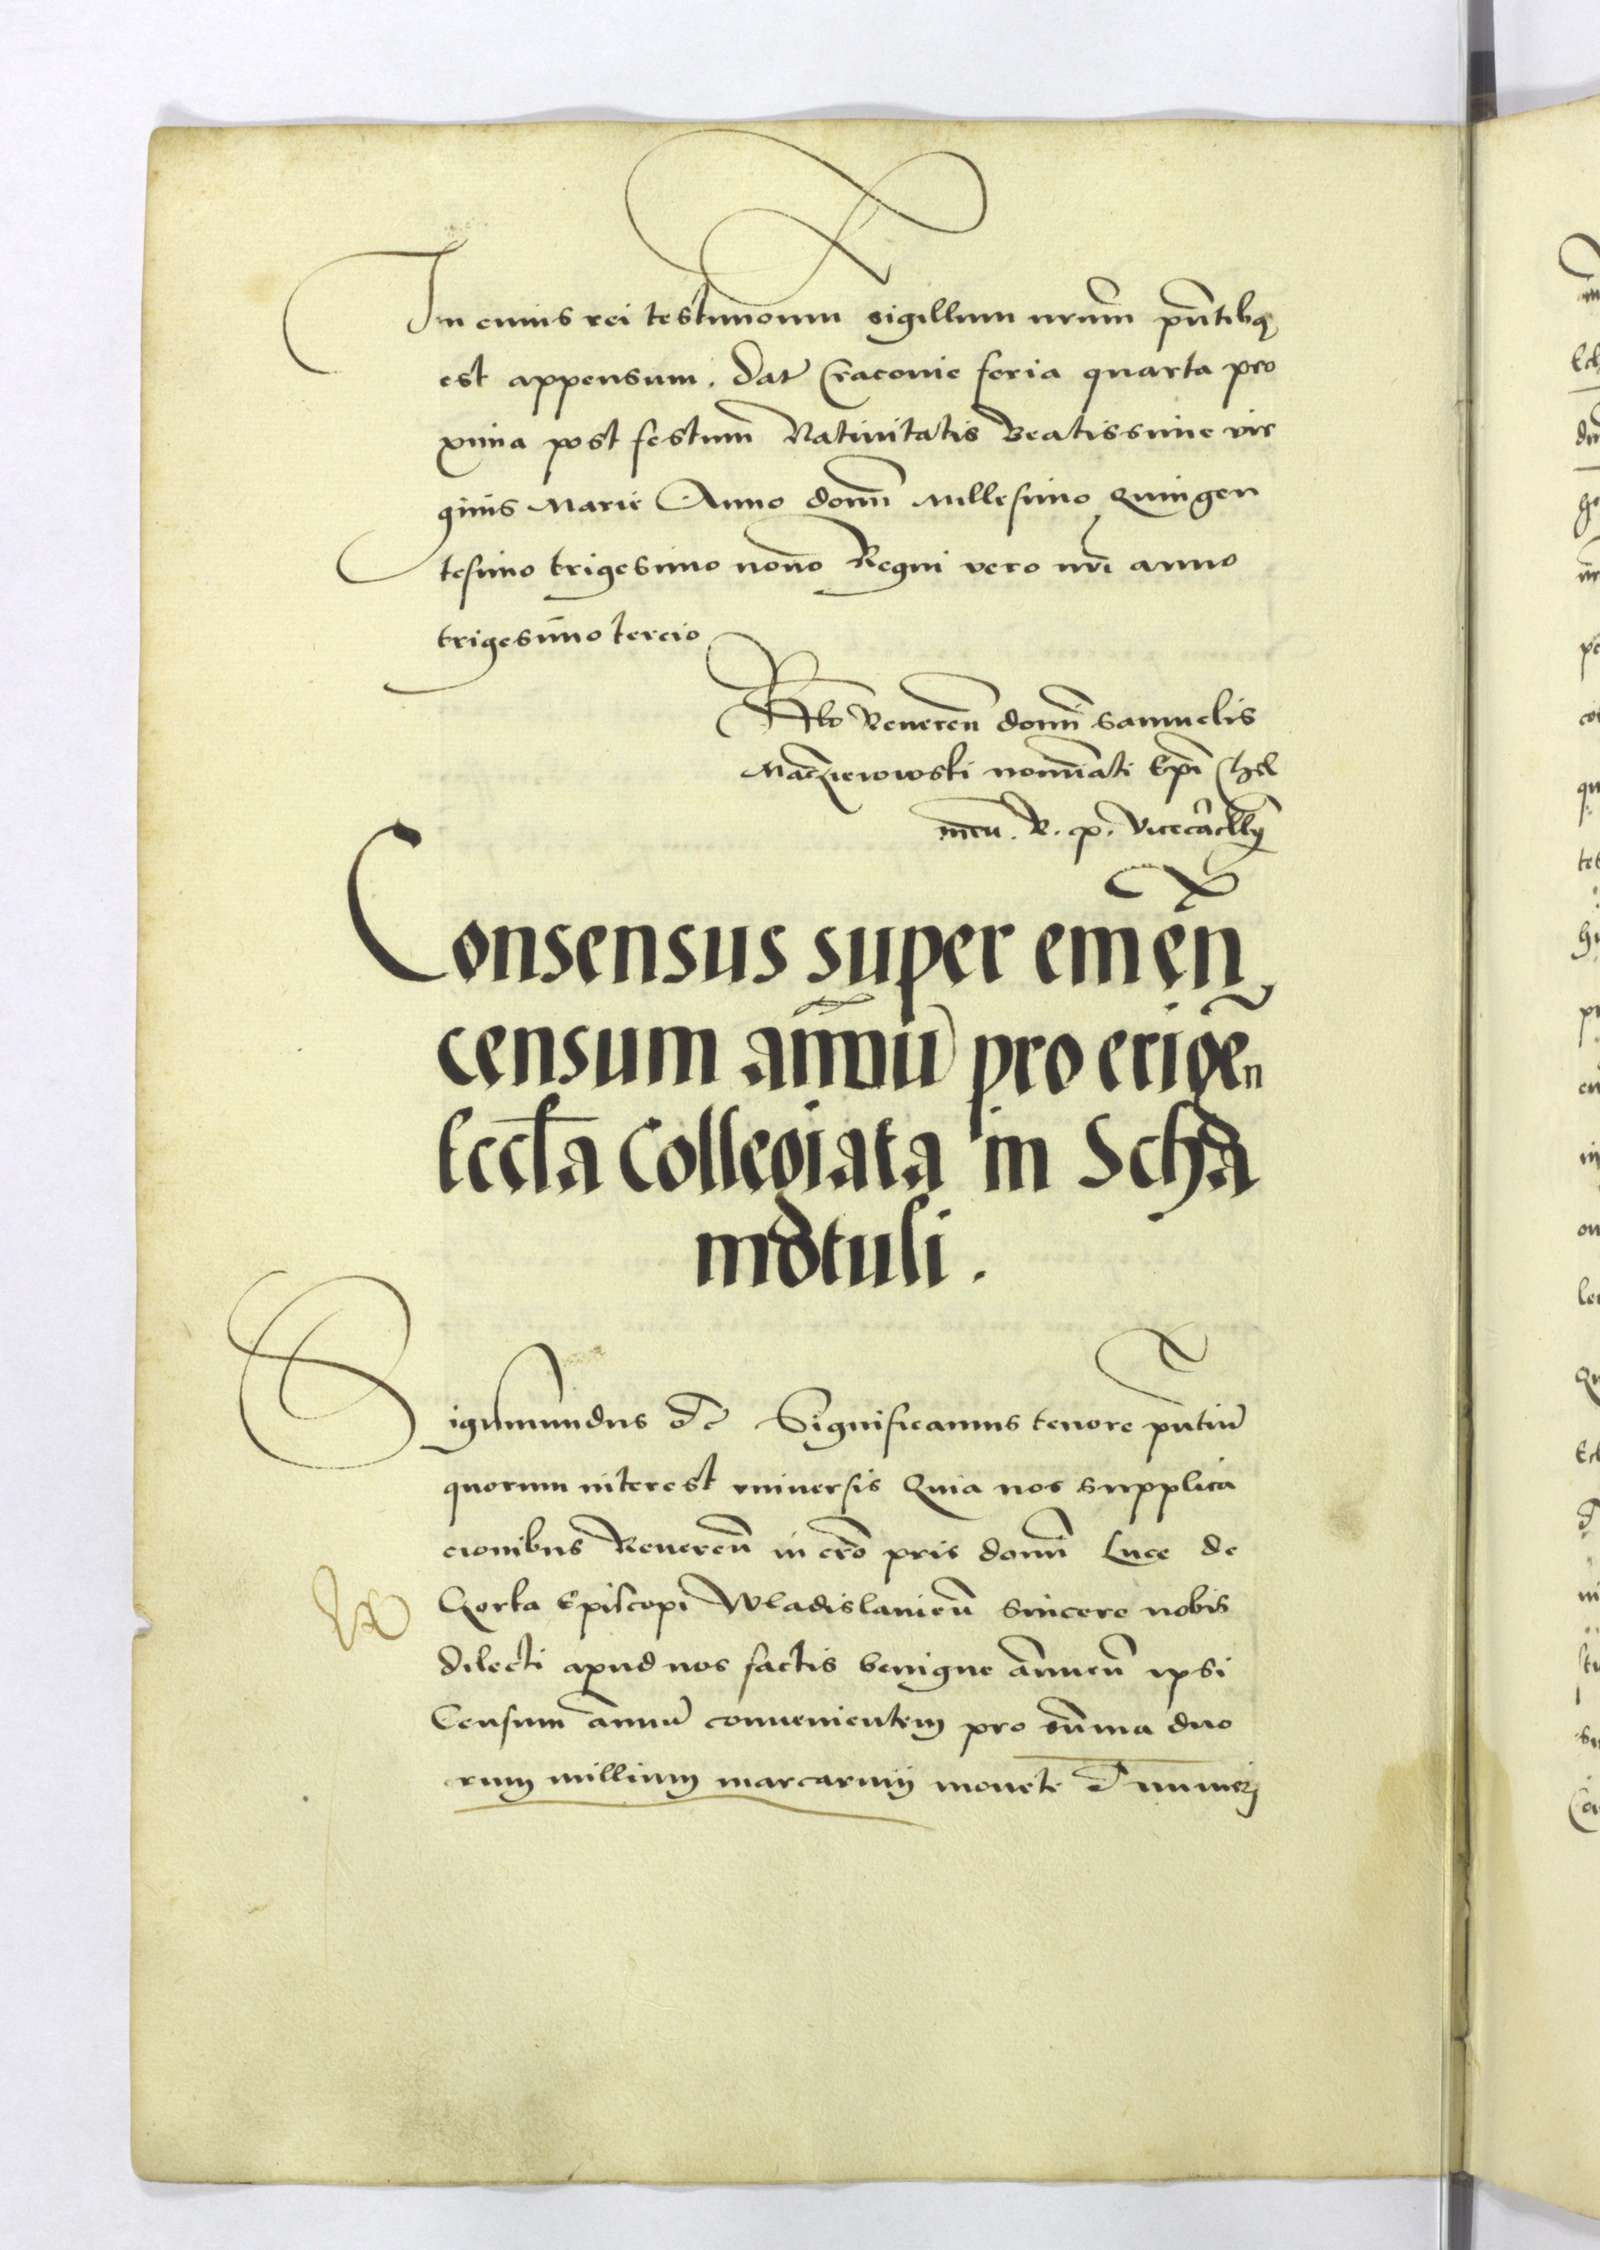 In cuius rei testimonium sigillum nrum pntibq
est appensum. Dat Cracovie feria quarta pro
xima post festum Nativitatis Beatissime vir
ginis Marie Anno domi Millesimo Quingen
tesimo trigesimo nono Regni vero nri anno
trigesimo tercio
Rlo Reveren domi Samuelis
Maczieiowski nominati Epi Chel
men. R. p. Vicecacllÿ
Consensus super emen
censum annuu pro erigen
Eccla Collegiata in Scha
motuli.
Sigismundus etc Significamus tenore pntiu
quorum interest universis Quia nos supplica
cionibus Reveren in cro pris domi Luce de
Gorka Episcopi Wladislavien sincere nobis
dilecti apud nos factis benigne annuen ipsi
Censum annuu convenientem pro summa duo
rum millium marcarum monete et numeri